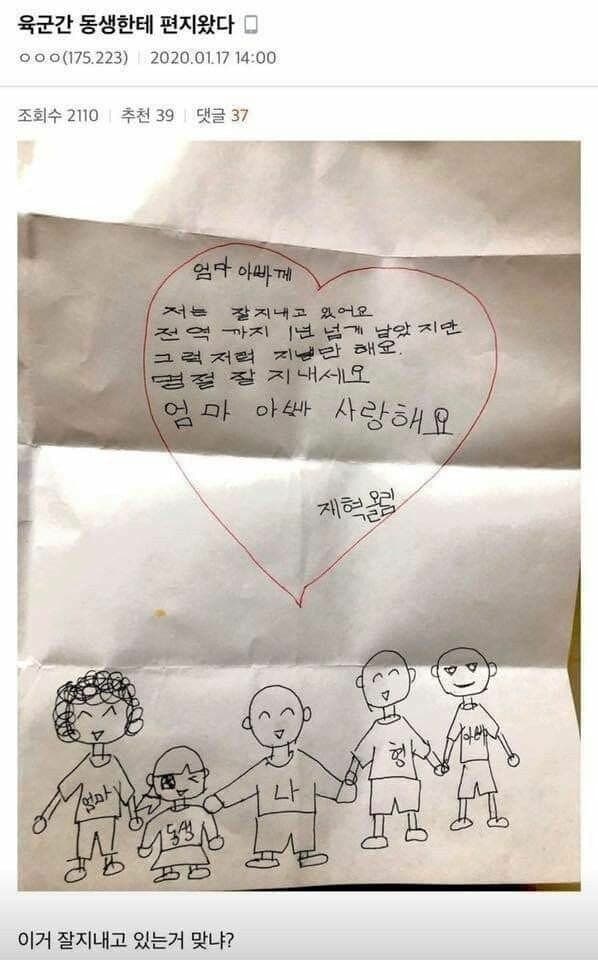 육군간 동생한테 편지왔다
ㅇㅇㅇ(175.223) 2020.01.17 14:00
조회수 2110 추천 39 댓글 37
엄마 아빠께
저는 잘지내고 있어요
전역 까지 1년 넘게 남았지만
그럭 저럭 지낼만 해요.
명절 잘 지내세요
엄마 아빠 사랑해요
재혁올림
엄마
동생
나
형
아빠
이거 잘지내고 있는거 맞냐?